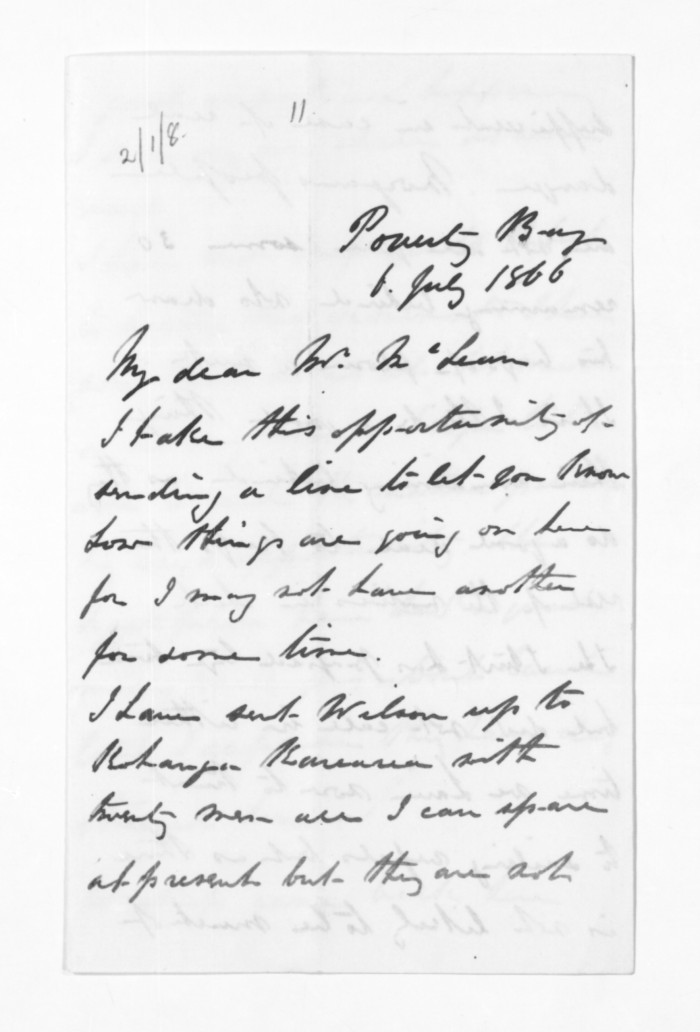 2/1/8.
11.
Poverty Bay
6. July 1866
My dear Mr. McLean
I take this opportunity of
sending a line to let you know
how things are going on here
for I may not have another
for some time.
I have sent Wilson up to
Kohanga Karearea with
twenty men all I can spare
at present but they are not